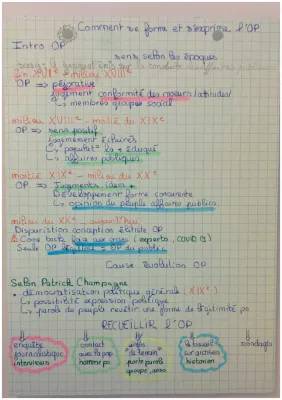 Comment se forme et s'exprime l'OP
Intro OP
sens selon les époques
fin XVIIe - milieu XVIIIe
OP => péjorative
jugement conformité des mœurs/attitudes/
↳ membres groupe social
milieu XVIIIe - moitié du XIXe
OP => sens positif
jugements éclairés
↳ populat° la + éduquée
↳ affaires publiques
moitié XIXe - milieu XXe
OP => Jugements, idées +
Développement forme concrète
↳ opinion du peuple affaires publics
milieu du XXe - aujourd'hui
Disparition conception élitiste OP
(experts, COVID 19)
Seule OP OP du public
Cause évolution OP
Selon Patrick Champagne
• démocratisation politique générale (XIXe)
↳ possibilité expression politique
↳ parole du peuple revêtir une forme de légitimité po
RECUEILLIR L'OP
enquête journalistique interviews
contact avec la pop homme po
terrain porte parole groupe
le travail sur archives historien
sondages